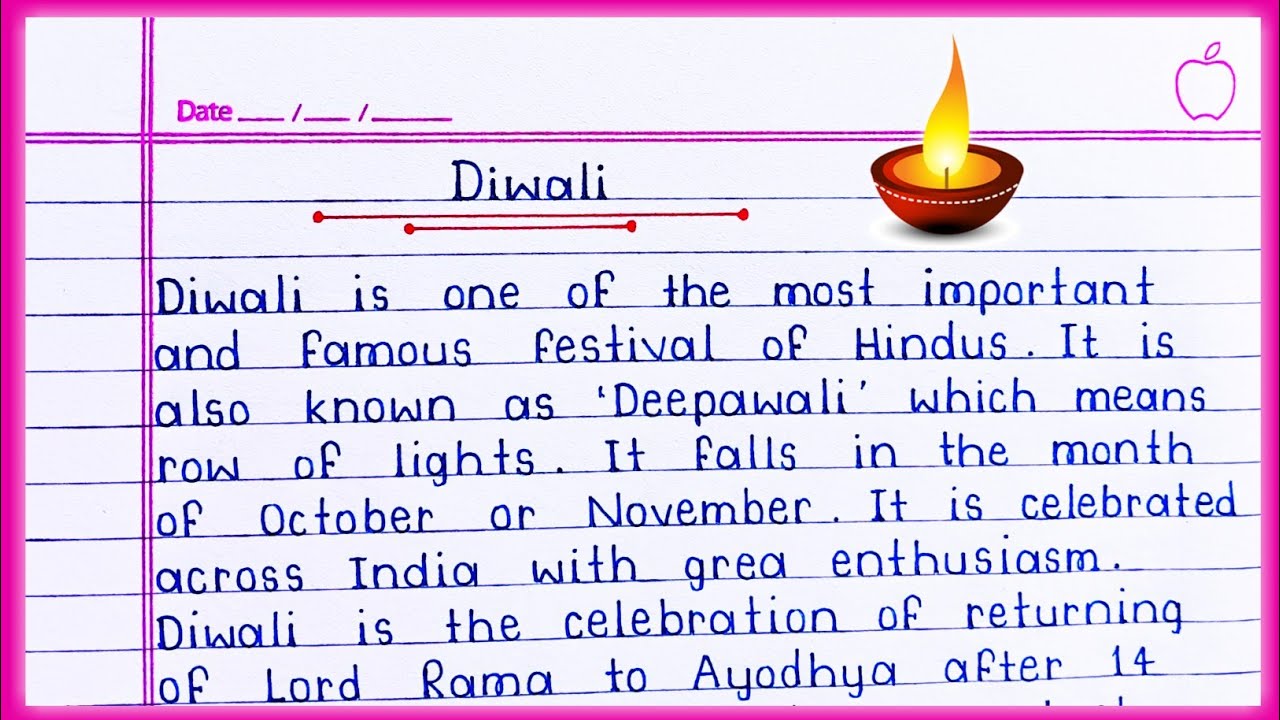 Date ___ /___ /_____
Diwali
Diwali is one of the most important
and famous festival of Hindus. It is
also known as ‘Deepawali’ which means
row of lights. It falls in the month
of October or November. It is celebrated
across India with grea enthusiasm.
Diwali is the celebration of returning
of Lord Rama to Ayodhya after 14